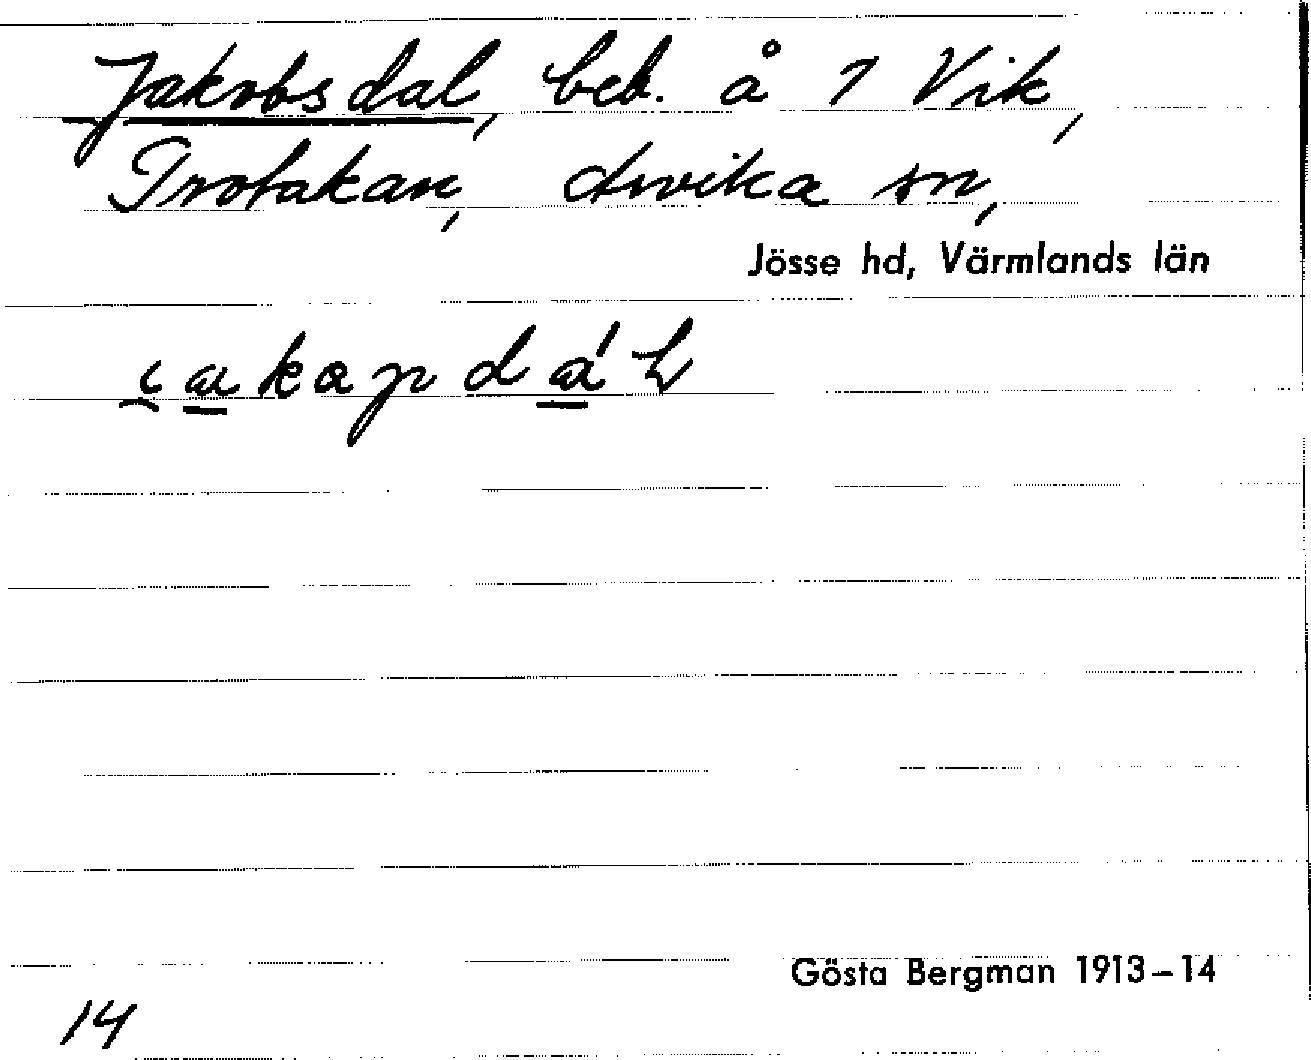 Jakobsdal, beb. å 1 Vik,
Prostakan, Arvika sn,
Jösse hd, Värmlands län
Gösta Bergman 1913-14
14